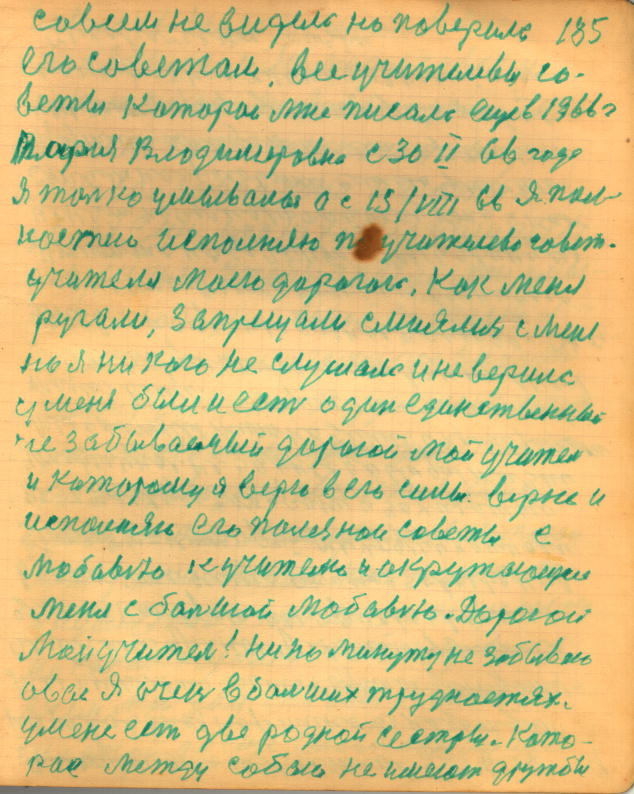 совсем не видела но поверила 135
его советам, все учителевы со-
веты каторое мне писала ещев 1966 г
Мария Владимеровна с 30 II 66 года
я толко умывалась а с 15/VIII 66 я пол-
ностию исполняю учителево совет.
учителя моего дорогого. Как меня
ругали, запрещали смиялись с меня
но я ни кого не слушала и не верила
у меня были и есть один единственный
не забываемый дорогой мой учител
и каторому я верю в его силы. верю и
исполняю его полезнои советы с
любавию к учителю и окружающим
меня с балшой любавию. Дорогой
мой учител! ни на минуту не забываю
о вас я очен в балших трудностях.
у мене есть две родной сестры. Като-
рае между собою не имеют дружбы